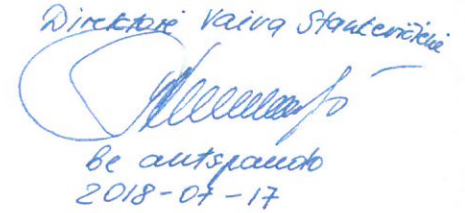 Direktorė Vaiva Stankevičienė
be antspaudo
2018-07-17